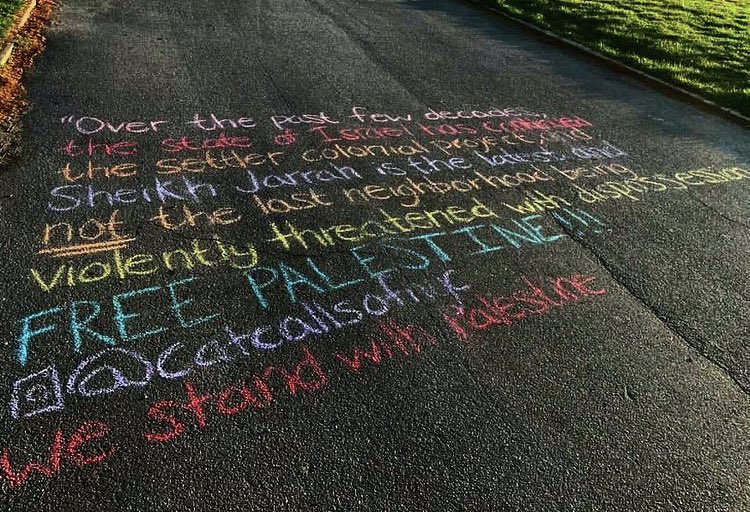 "Over the past few decades,
the state of Israel has continued
the settler colonial project, and
Sheikh Jarrah is the latest, and
not the last neighborhood being
violently threatened with dispossession
FREE PALESTINE!!!
@catcallsofnf
We stand with palestine